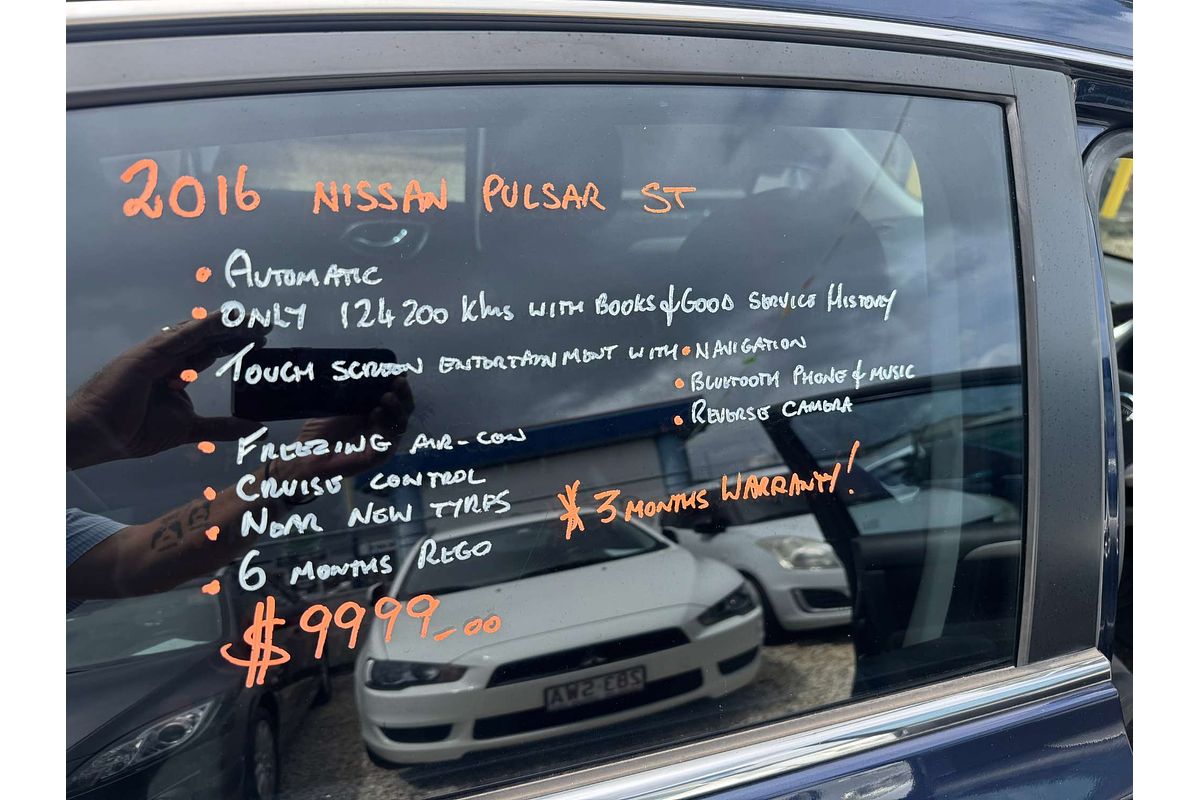 2016 NISSAN PULSAR ST
• AUTOMATIC
• ONLY 124 200 Kms WITH BOOKS & GOOD SERVICE HISTORY
• TOUCH SCREEN ENTERTAINMENT WITH • NAVIGATION
• BLUETOOTH PHONE & MUSIC
• REVERSE CAMERA
• FREEZING AIR-CON
• CRUISE CONTROL
• NEAR NEW TYRES
* 3 MONTHS WARRANTY!
• 6 MONTHS REGO
$9999-00